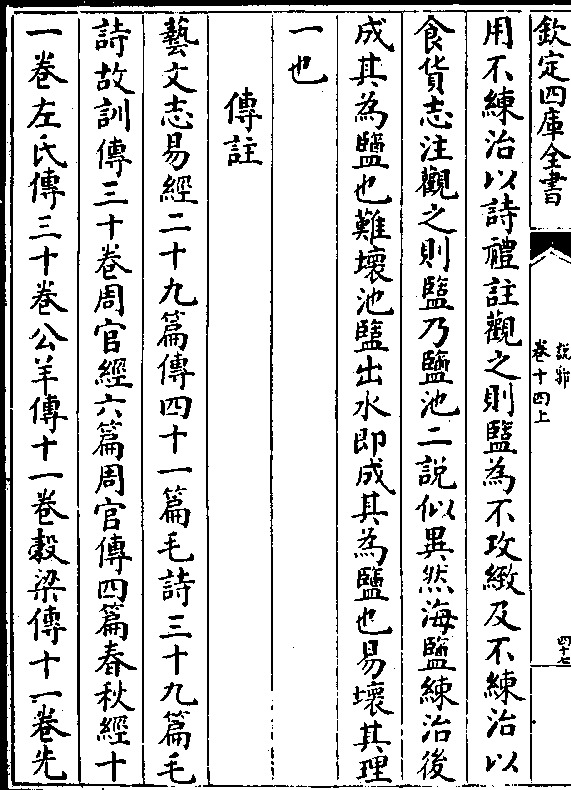 欽定四庫全書
説郛
卷十四上
四十七
用不練治以詩禮註觀之則盬為不攻緻及不練治以
食貨志注觀之則盬乃鹽池二説似異然海鹽練治後
成其為鹽也難壞池盬出水即成其為鹽也易壞其理
一也
傳註
藝文志易經二十九篇傳四十一篇毛詩三十九篇毛
詩故訓傳三十卷周官經六篇周官傳四篇春秋經十
一卷左氏傳三十卷公羊傳十一卷穀梁傳十一卷先